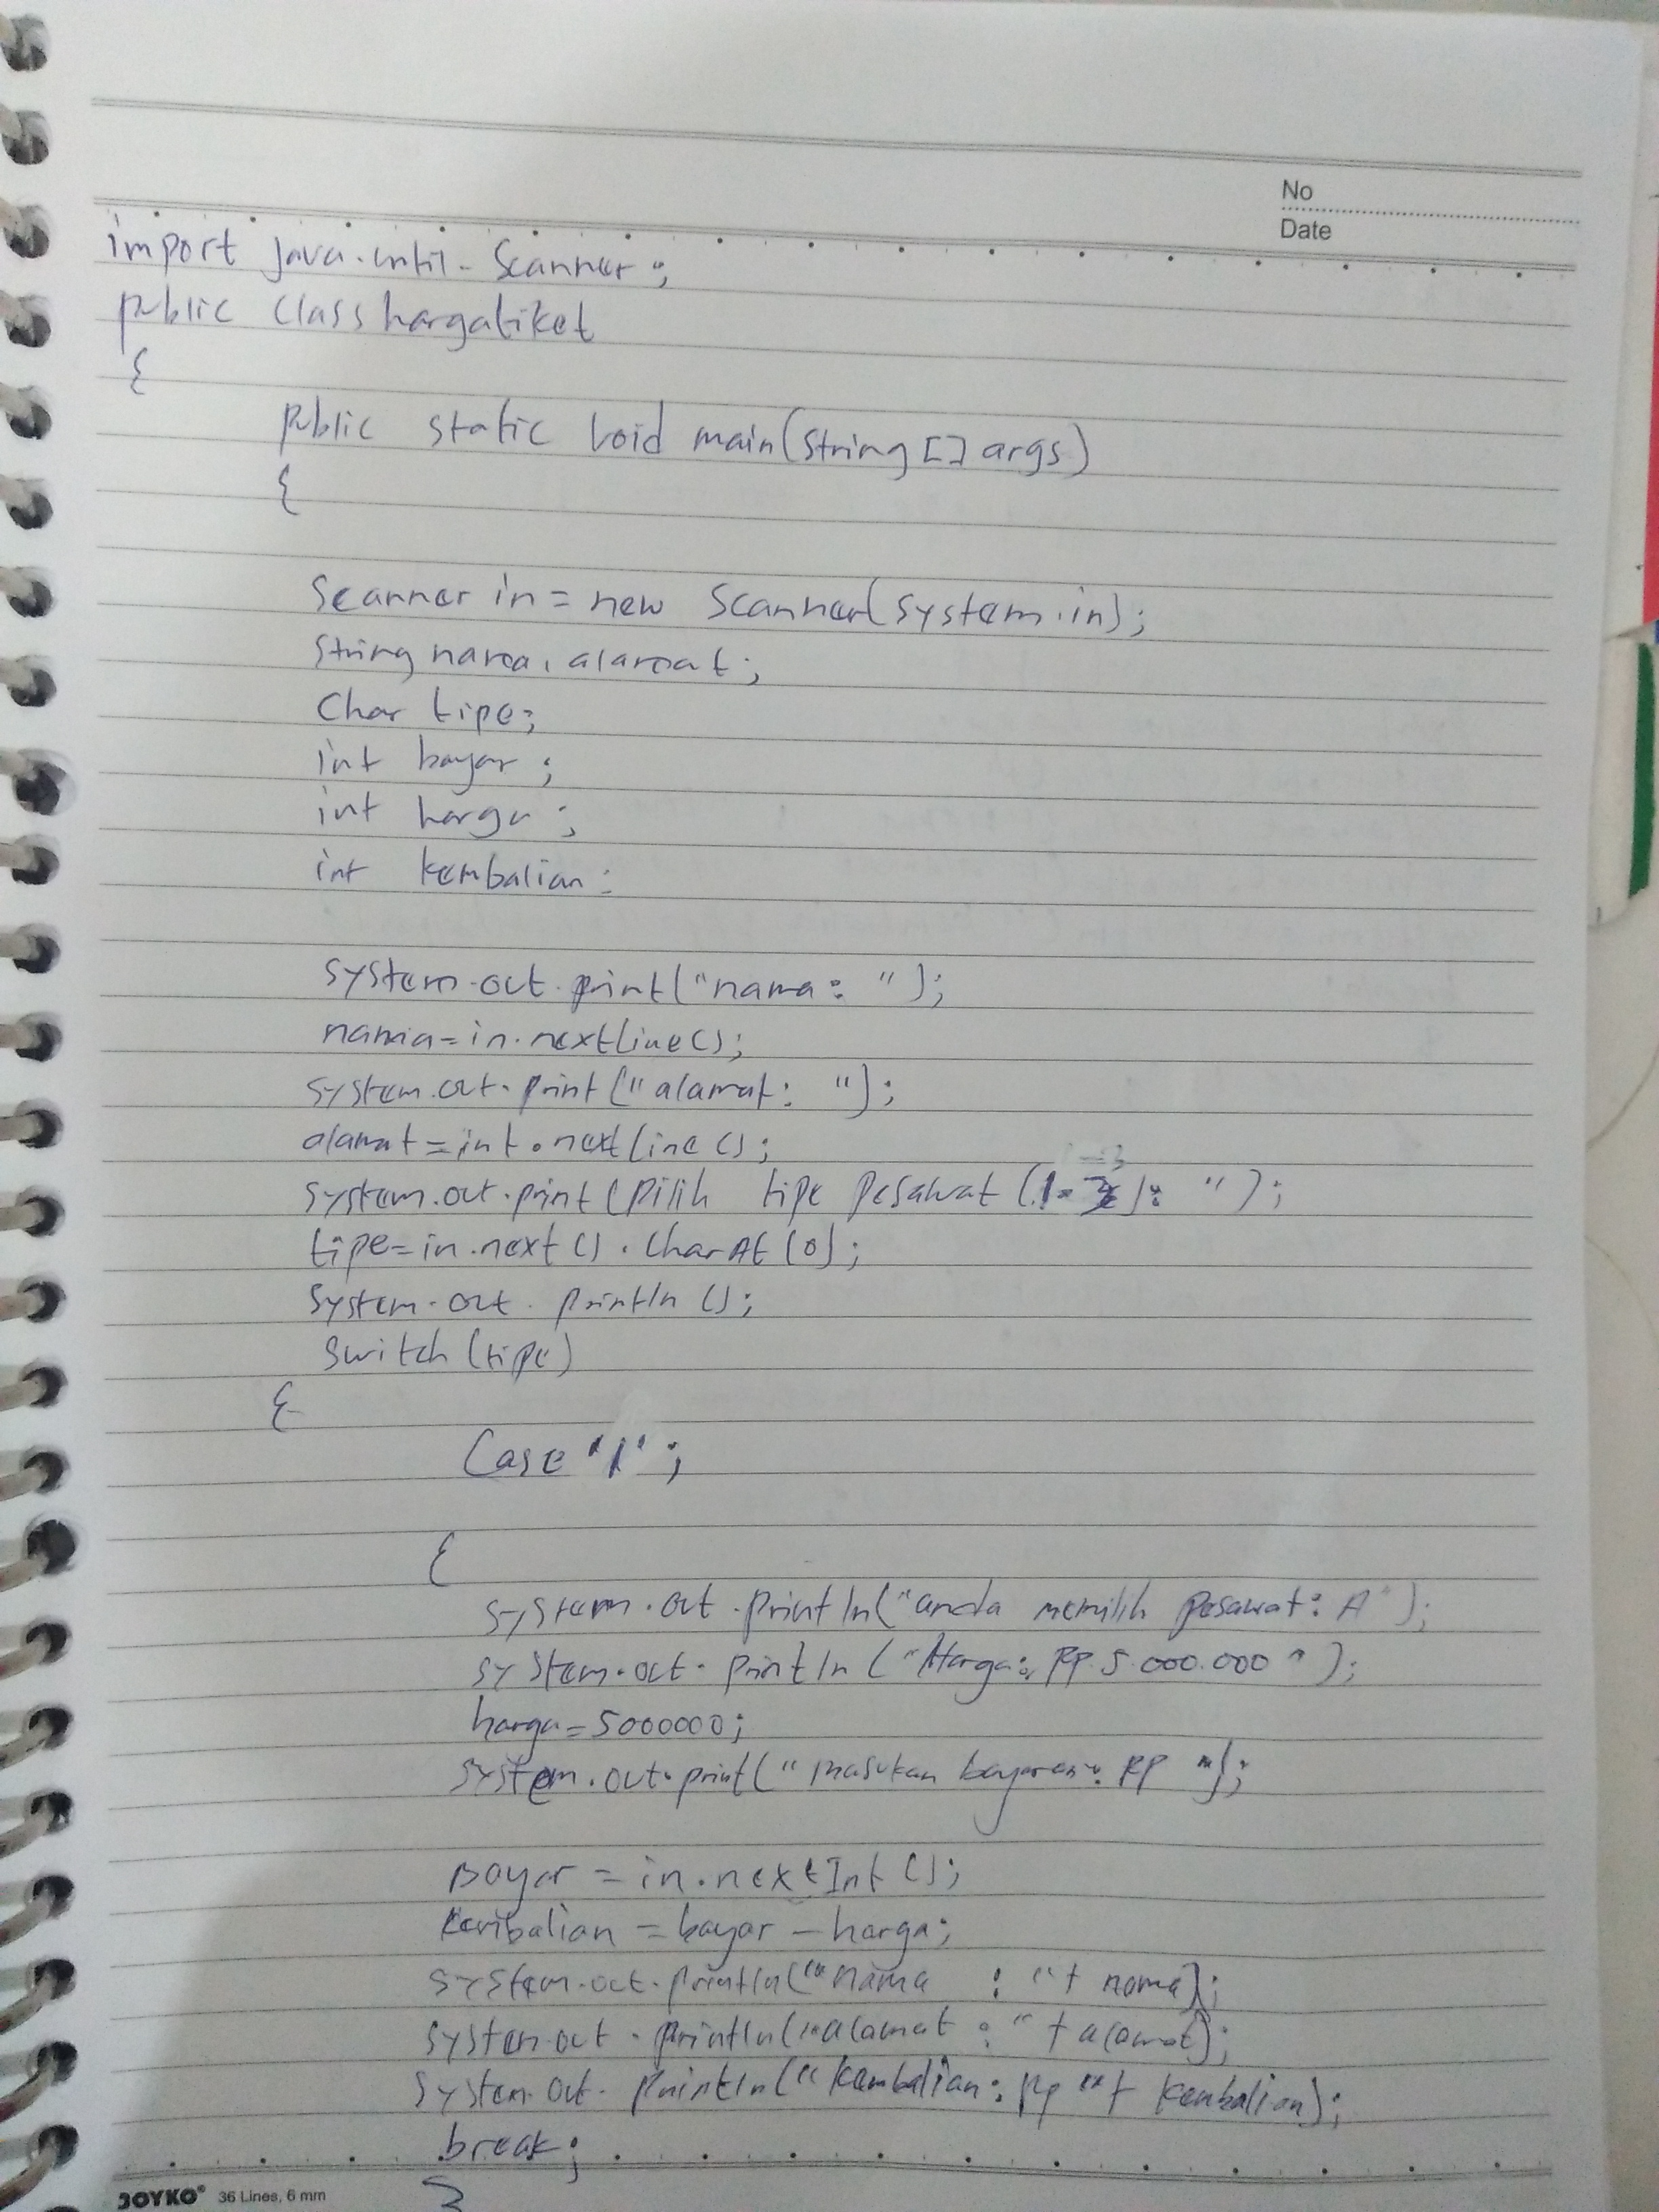 No
Date
import java.until. Scanner;
public class hargatiket
{
public static void main(string [] args)
{
Scanner in = new Scanner(system.in);
string nama, alamat;
Char tipe;
int bayar ;
int harga ;
int kembalian:
system.out.print("nama: ");
nama=in.nextline();
system.out.print("alamat: ");
alamat=int.nextline();
system.out.print(pilih tipe pesawat (1-3): ");
tipe=in.next().CharAt(0);
system.out.println();
switch (tipe)
{
Case '1' ;
{
system.out.println("anda memilih pesawat: A");
system.out.println("Harga: Rp.5.000.000 ");
harga=5000000;
system.out.print("masukan bayaran: Rp ");
Bayar = in.nextInt();
kembalian = bayar - harga;
system.out.println("nama : "+ nama);
system.out.println("alamat : "+alamat);
system.out.println("kembalian: Rp "+ kembalian);
break;
}
JOYKO® 36 Lines, 6 mm